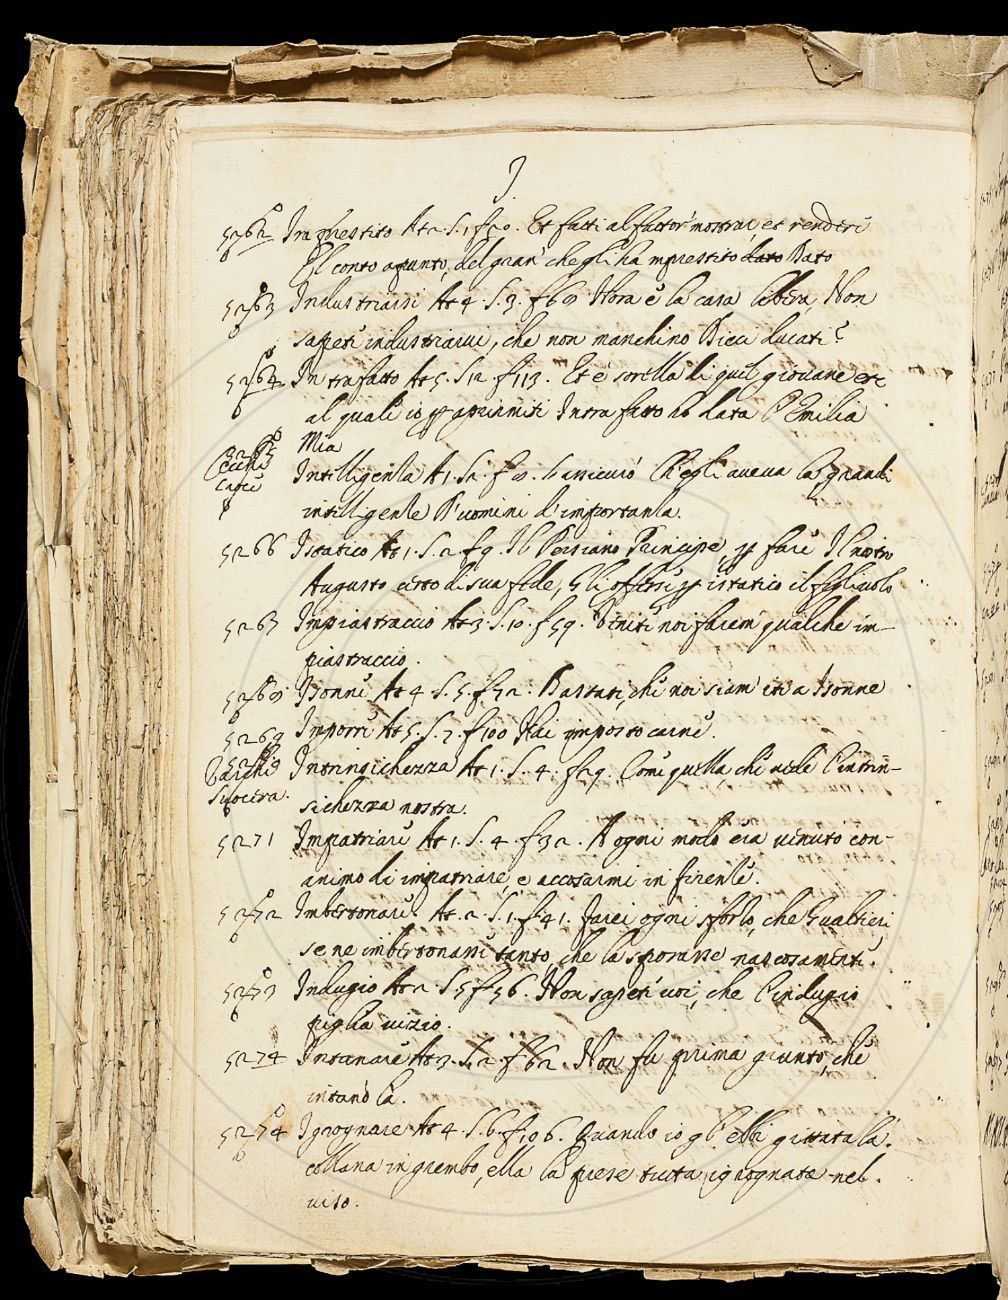 I.
5262 In prestito At 2. S. 1. f 20. Et fatti al fattor nostro, et renderà
Il conto apunto, del gran' che gli ha inprestito dato Dato
5263 Industriarsi At 4. S. 3. f 68 Hora è la casa libera, Non
sapete industriarvi, che non manchino Dieci ducati?
5264 In tra fatto At 5. S 12 f 113. Et è sorella di quel giovane etc
al quale io Intra fatto ho data l'Emilia
Mia
5265
Cecchi
Intelligenza At 1. S 2. f 8. Ch'egli aveva la grandi
intelligenze d'uomini d'importanza.
5266 Istatico At 1. S. 2 f 9. Il Persiano Principe, per fare Il nostro
Augusto certo di sua fede, gli offerì per istatico il figliuolo
5267 Impiastraccio At 3. S. 10. f 59. noi farem' qualche im-
piastraccio.
5268 Isonne At 4. S. 5. f 72. Bastari, che noi siam' iti a Isonne
5269 Imporre At 5. S. 7. f 100 Hai imposto carne.
Suocera.
Intrinsichezza At 1. S. 4. f 29. Come quella, che vede l'intrin-
sichezza nostra.
5271 Impatriare At 1. S. 4. f 32. A ogni modo era venuto con-
animo di impatriare, e accasarmi in firenze.
5272 Imbertonare. At. 2. S. 1. f 41. Farei ogni sforzo, che Gualtieri
se ne imbertonassi tanto, che la sposasse nascosamente.
5273 Indugio At 2 S. 5 f 56. Non sapete voi, che l'indugio
piglia vizio.
5274 Intanare At 3. S. 2. f 62. Non fu prima giunto, che
intanò la.
5274 Ingrognare At 4. S. 6. f 106. Quando io gl' ebbi gittata la
collana in grembo, ella la prese tutta ingrognata nel.
viso.